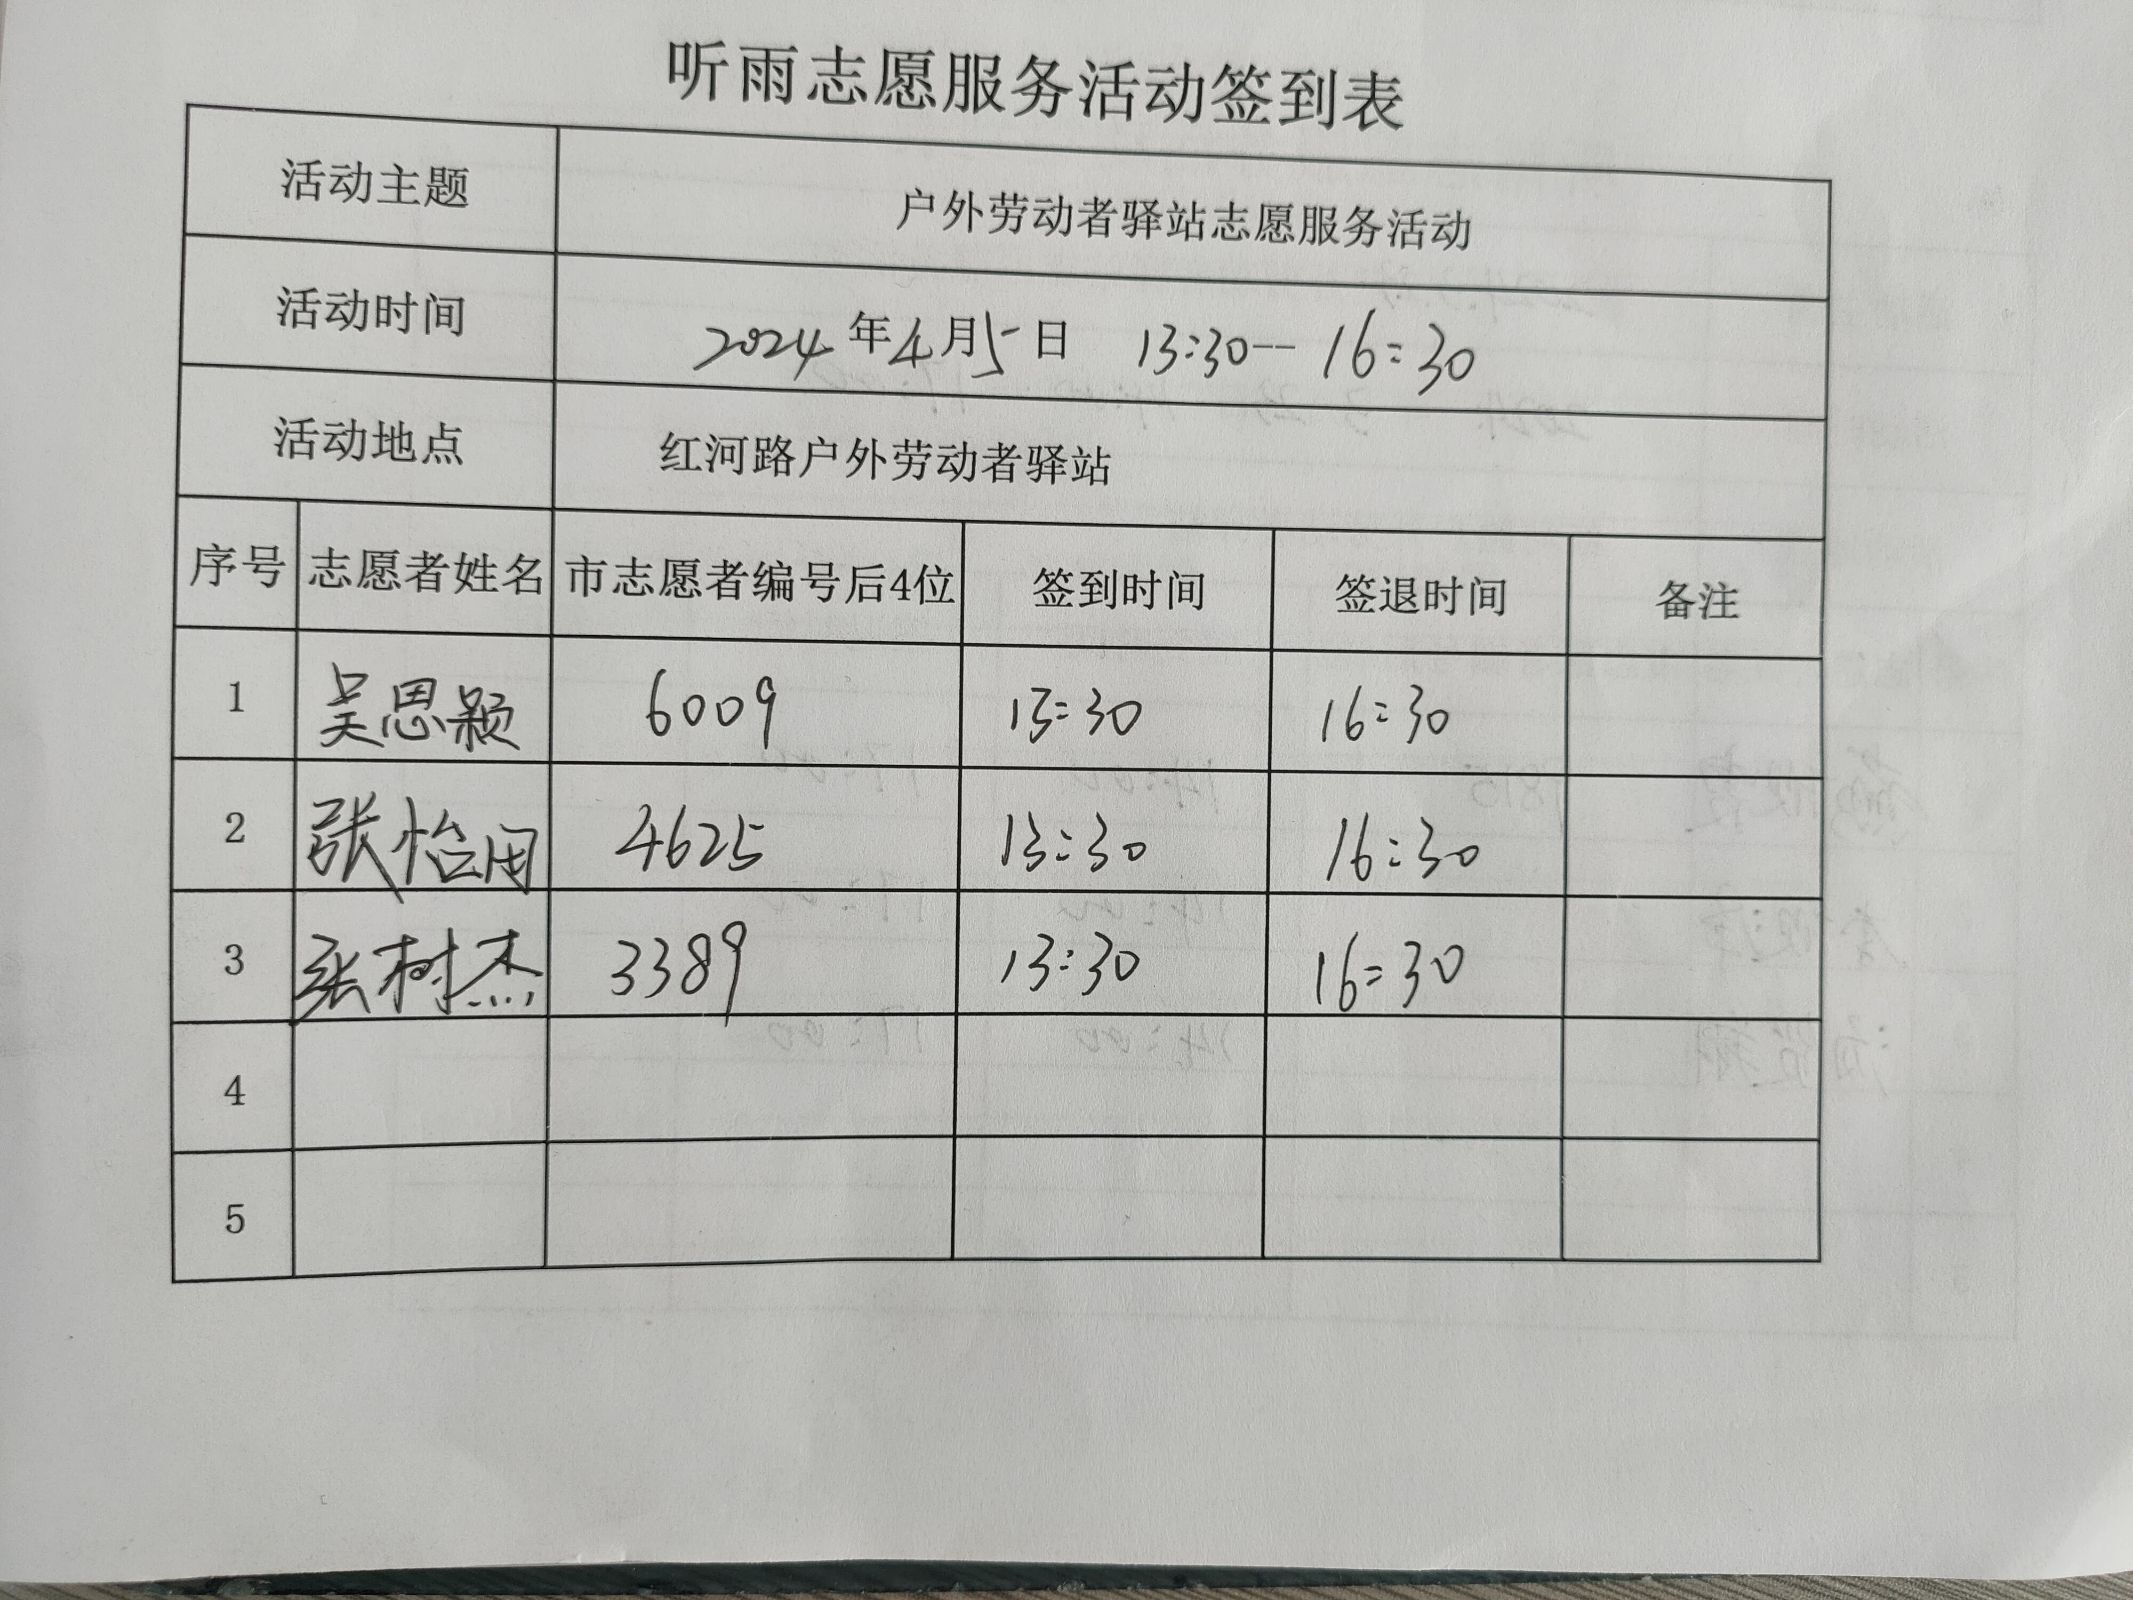 听雨志愿服务活动签到表
活动主题 户外劳动者驿站志愿服务活动
活动时间 2024年4月5日 13:30--16:30
活动地点 红河路户外劳动者驿站
序号 志愿者姓名 市志愿者编号后4位 签到时间 签退时间 备注
1 吴思颖 6009 13:30 16:30
2 张怡田 4625 13:30 16:30
3 张树杰 3389 13:30 16:30
4
5